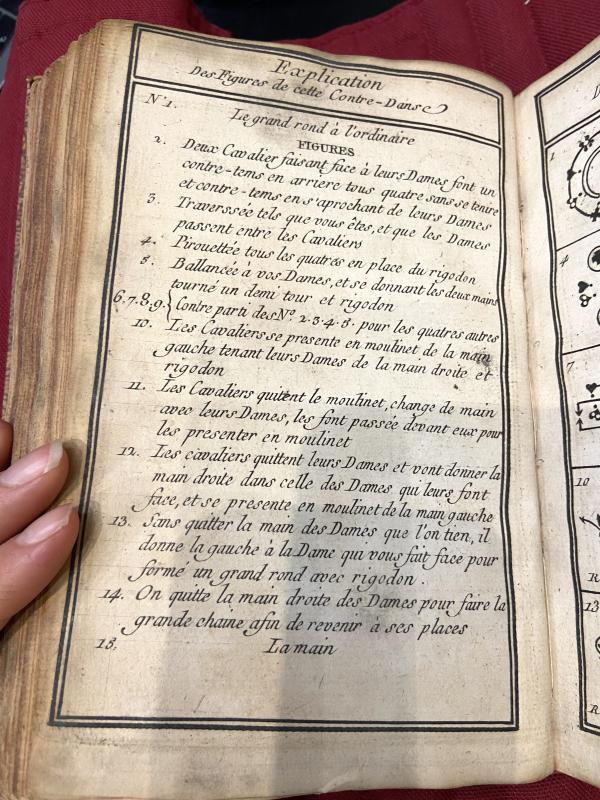 Explication
Des Figures de cette Contre-Danse
N°1. Le grand rond à l'ordinaire
FIGURES
2. Deux Cavalier faisant face à leurs Dames font un
contre-tems en arriere tous quatre sans se tenire
et contre-tems en s'aprochant de leurs Dames
3. Traverssée tels que vous êtes, et que les Dames
passent entre les Cavaliers
4. Pirouettée tous les quatres en place du rigodon
5. Ballancée à vos Dames, et se donnant les deux mains
tourné un demi tour et rigodon
6.7.8.9.} Contre parti des N°. 2.3.4.5. pour les quatres autres
10. Les Cavaliers se presente en moulinet de la main
gauche tenant leurs Dames de la main droite et
rigodon
11. Les Cavaliers quitent le moulinet, change de main
avec leurs Dames, les font passée devant eux pour
les presenter en moulinet
12. Les cavaliers quittent leurs Dames et vont donner la
main droite dans celle des Dames qui leurs font
face, et se presente en moulinet de la main gauche
13. Sans quitter la main des Dames que l'on tien, il
donne la gauche à la Dame qui vous fait face pour
formé un grand rond avec rigodon.
14. On quitte la main droite des Dames pour faire la
grande chaine afin de revenir à ses places
15. La main
1
4
7
10
R
13
R